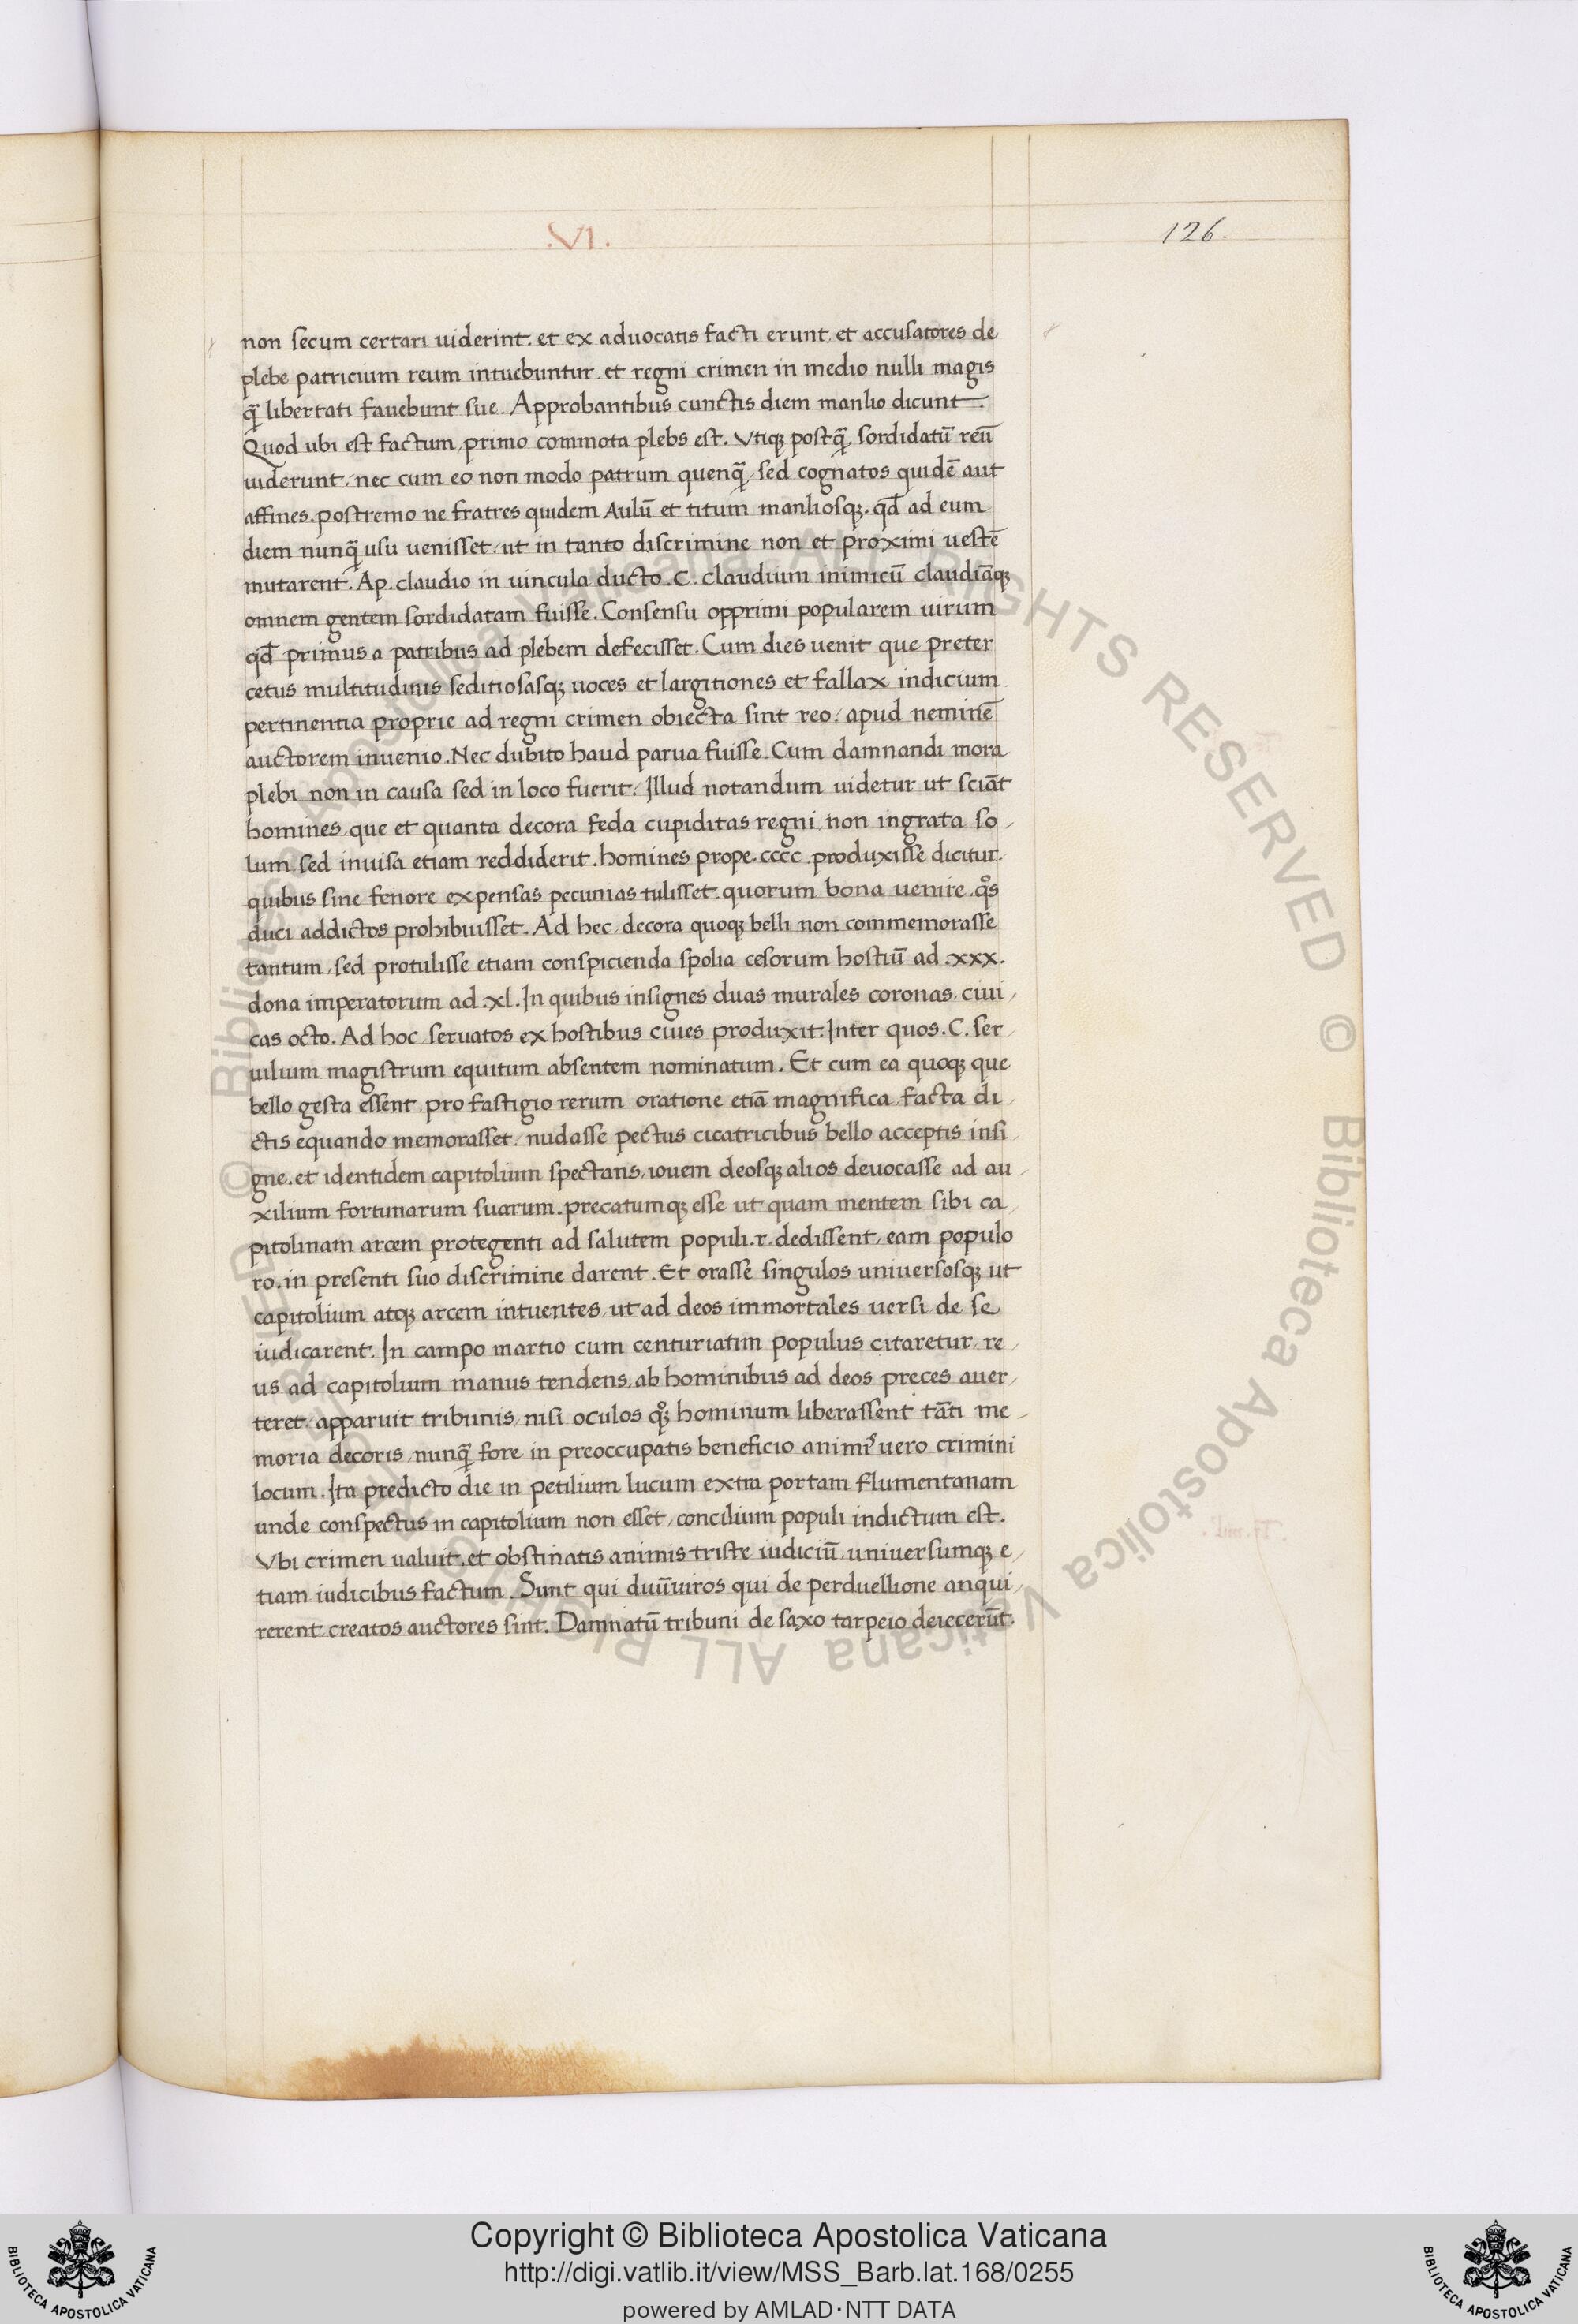 .VI.
126.
non secum certari uiderint. et ex aduocatis facti erunt, et accusatores de
plebe patricium reum intuebuntur. et regni crimen in medio nulli magis
qᷓ libertati fauebunt sue. Approbantibus cunctis diem manlio dicunt.
Quod ubi est factum, primo commota plebs est. Vtiqꝫ postqᷓ sordidatū reū
uiderunt, nec cum eo non modo patrum quenqᷓ, sed cognatos quidē aut
affines. postremo ne fratres quidem Aulū et titum manliosqꝫ. qđ ad eum
diem nunqᷓ usu uenisset, ut in tanto discrimine non et proximi uestē
mutarent. Ap. claudio in uincula ducto. C. claudium inimicū claudiāqꝫ
omnem gentem sordidatam fuisse. Consensu opprimi popularem uirum
qđ primus a patribus ad plebem defecisset. Cum dies uenit que preter
cetus multitudinis seditiosasqꝫ uoces et largitiones et fallax indicium
pertinentia proprie ad regni crimen obiecta sint reo, apud neminē
auctorem inuenio. Nec dubito haud parua fuisse. Cum damnandi mora
plebi non in causa sed in loco fuerit. Illud notandum uidetur ut sciāt
homines que et quanta decora feda cupiditas regni non ingrata so/
lum sed inuisa etiam reddiderit. homines prope. cccc. produxisse dicitur.
quibus sine fenore expensas pecunias tulisset. quorum bona uenire. qͦs
duci addictos prohibuisset. Ad hec, decora quoqꝫ belli non commemorasse
tantum, sed protulisse etiam conspicienda spolia cesorum hostiū ad .xxx.
dona imperatorum ad .xl. In quibus insignes duas murales coronas, ciui/
cas octo. Ad hoc seruatos ex hostibus ciues produxit. Inter quos. C. ser/
uilium magistrum equitum absentem nominatum. Et cum ea quoqꝫ que
bello gesta essent pro fastigio rerum oratione etiā magnifica, facta di/
ctis equando memorasset, nudasse pectus cicatricibus bello acceptis insi/
gne. et identidem capitolium spectans, iouem deosqꝫ alios deuocasse ad au/
xilium fortunarum suarum. precatumqꝫ esse ut quam mentem sibi ca/
pitolinam arcem protegenti ad salutem populi .r. dedissent, eam populo
ro. in presenti suo discrimine darent. Et orasse singulos uniuersosqꝫ ut
capitolium atqꝫ arcem intuentes, ut ad deos immortales uersi de se
iudicarent. In campo martio cum centuriatim populus citaretur, re/
us ad capitolium manus tendens, ab hominibus ad deos preces auer/
teret, apparuit tribunis, nisi oculos qͦꝫ hominum liberassent tāti me/
moria decoris, nunqᷓ fore in preoccupatis beneficio animis uero crimini
locum. Ita predicto die in petilium lucum extra portam flumentanam
unde conspectus in capitolium non esset, concilium populi indictum est.
Vbi crimen ualuit. et obstinatis animis triste iudiciū uniuersumqꝫ e/
tiam iudicibus factum. Sunt qui duūuiros qui de perduellione anqui/
rerent creatos auctores sint. Damnatū tribuni de saxo tarpeio deiecerūt.
© Biblioteca Apostolica Vaticana ALL RIGHTS RESERVED
Copyright © Biblioteca Apostolica Vaticana
http://digi.vatlib.it/view/MSS_Barb.lat.168/0255
powered by AMLAD·NTT DATA
BIBLIOTECA APOSTOLICA VATICANA
BIBLIOTECA APOSTOLICA VATICANA